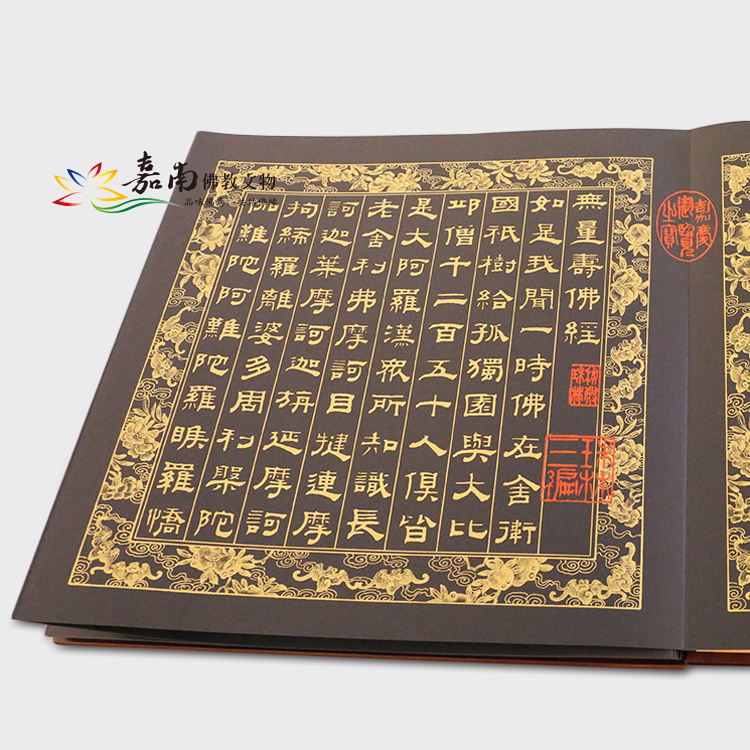 嘉南佛教文物
嘉慶御覽之寶
無量壽佛經
如是我聞一時佛在舍衛
國祇樹給孤獨園與大比
邱僧千二百五十人俱皆
是大阿羅漢眾所知識長
老舍利弗摩訶目揵連摩
訶迦葉摩訶迦旃延摩訶
拘絺羅離婆多周利槃陀
伽難陀阿難陀羅睺羅憍